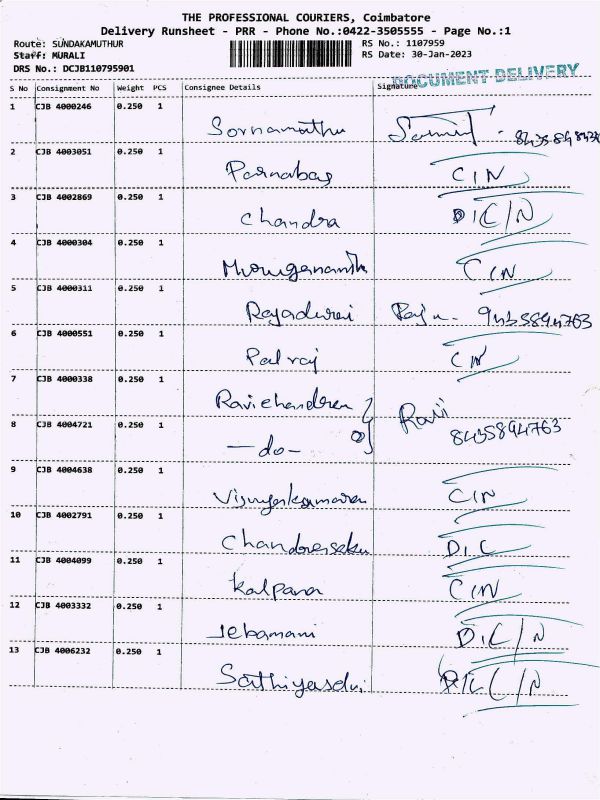 THE PROFESSIONAL COURIERS, Coimbatore
Delivery Runsheet - PRR - Phone No.:0422-3505555 - Page No.:1
Route: SUNDAKAMUTHUR
Staff: MURALI
DRS No.: DCJB110795901
RS No.: 1107959
RS Date: 30-Jan-2023
DOCUMENT DELIVERY
S No Consignment No Weight PCS Consignee Details Signature
1 CJB 4000246 0.250 1
Sornamuthu
2 CJB 4003051 0.250 1
Parnabas C/N
3 CJB 4002869 0.250 1
Chandra D/C/N
4 CJB 4000304 0.250 1
Muruganantha C/N
5 CJB 4000311 0.250 1
Rajadurai Raju - 9435894763
6 CJB 4000551 0.250 1
Palraj C/N
7 CJB 4000338 0.250 1
Ravichandran
Ravi
8 CJB 4004721 0.250 1
8435894763
-do-
9 CJB 4004638 0.250 1
Vijayakumaran C/N
10 CJB 4002791 0.250 1
Chandrasekar D/C
11 CJB 4004099 0.250 1
Kalpana C/N
12 CJB 4003332 0.250 1
Jebamani D/C/N
13 CJB 4006232 0.250 1
Sathiyasdvi D/C/N